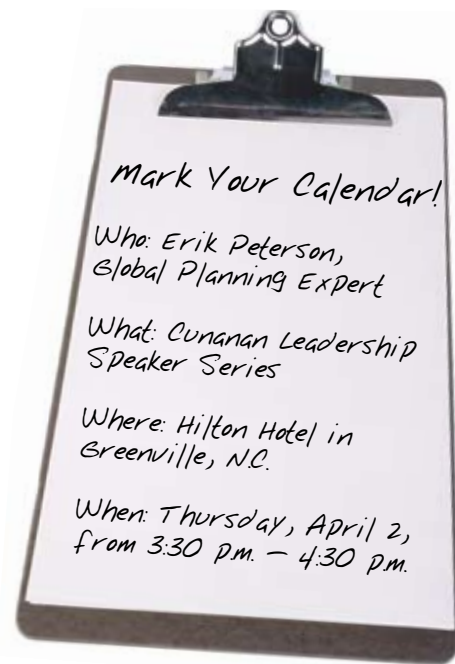 mark Your Calendar!
Who: Erik Peterson,
Global Planning Expert
What: Cunanan Leadership
Speaker Series
Where: Hilton Hotel in
Greenville, N.C.
When: Thursday, April 2,
from 3:30 p.m. – 4:30 p.m.